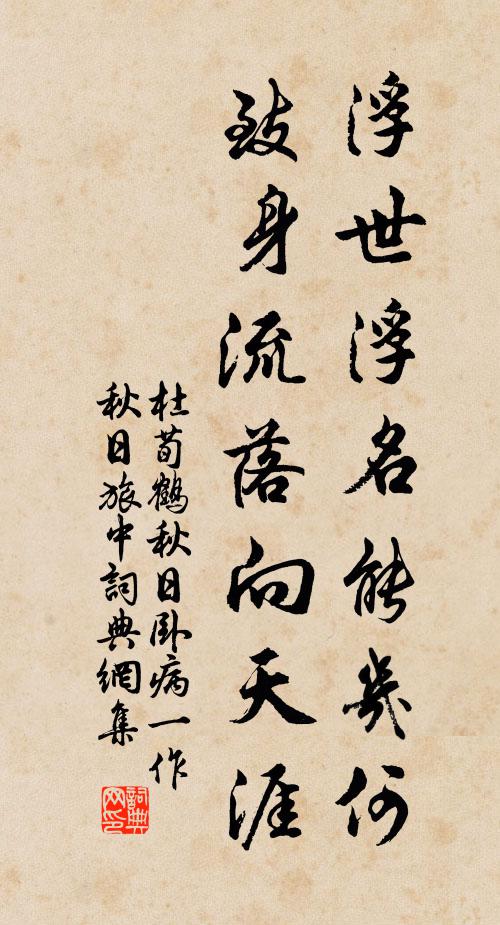 浮世浮名能幾何
致身流落向天涯
杜荀鶴秋日臥病一作
秋日旅中詞典網集
詞典網印